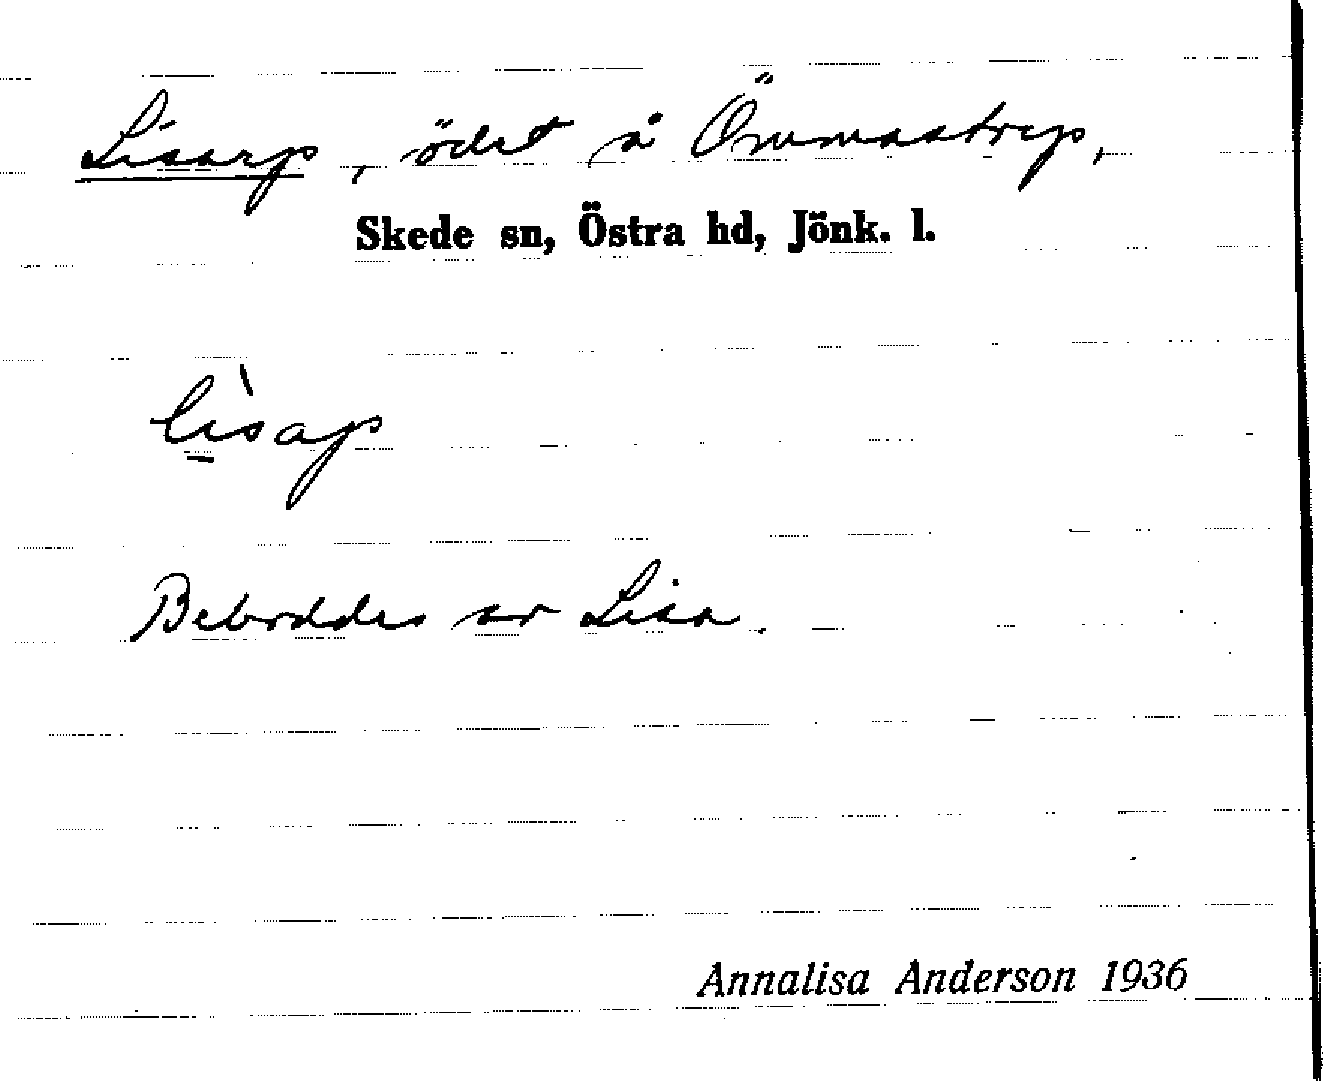 Lisarp, ödet å Ömmastrep,
Skede sn, Östra hd, Jönk. l.
li̠s̀ap
Beboddes av Lisa.
Annalisa Anderson 1936